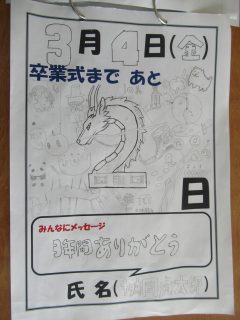 3月4日(金)
卒業式まで あと
2
日
みんなにメッセージ
3年間ありがとう
氏名(